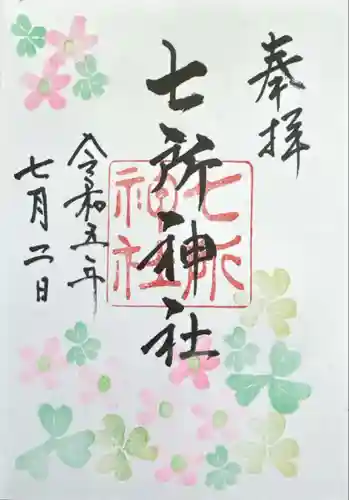 奉拝
七所神社
七所
神社
令和五年
七月二日